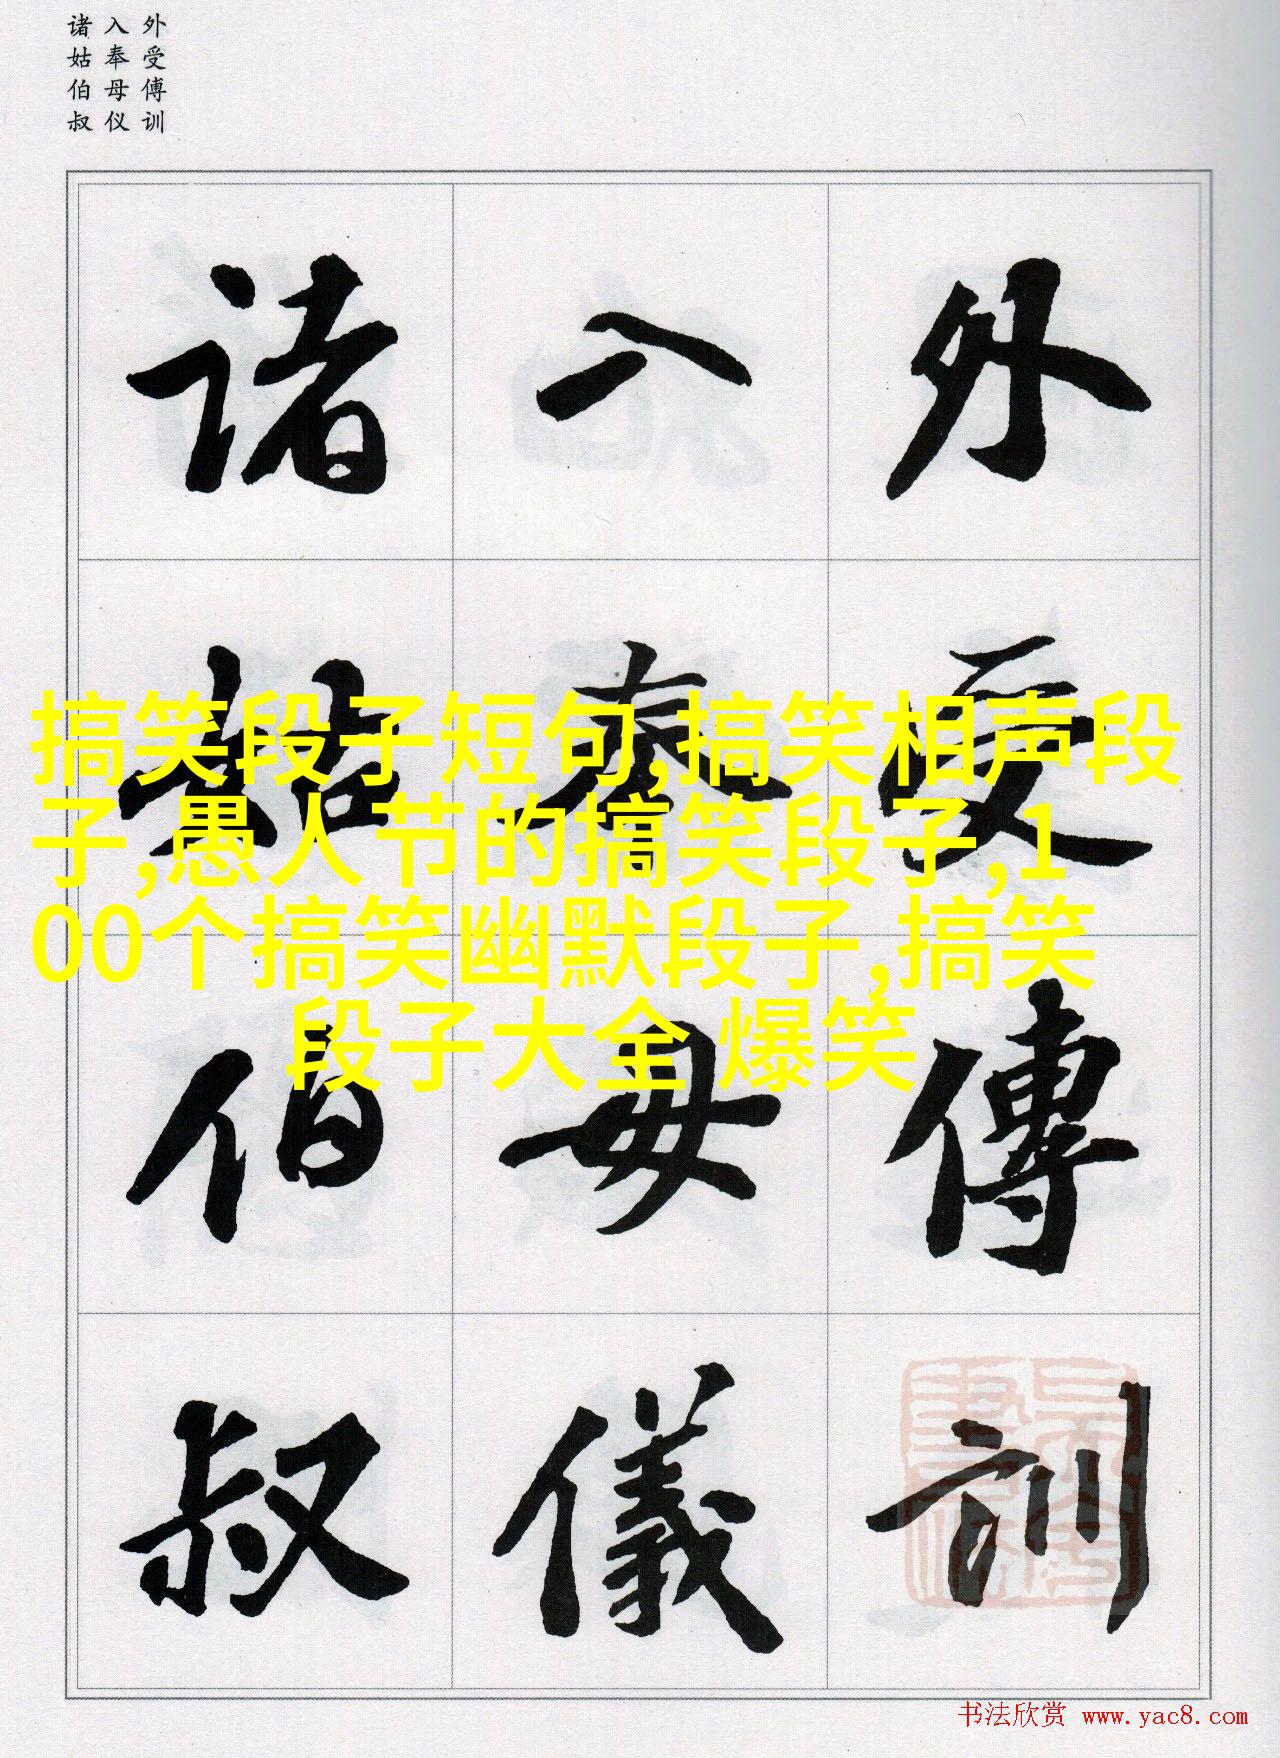 外受傅训
入奉母仪
诸姑伯叔
外受傅訓
入奉母儀
诸姑伯叔
搞笑段子短句,搞笑相声段
子,愚人节的搞笑段子,1
00个搞笑幽默段子,搞笑
段子大全 爆笑
书法欣赏 www.yac8.com